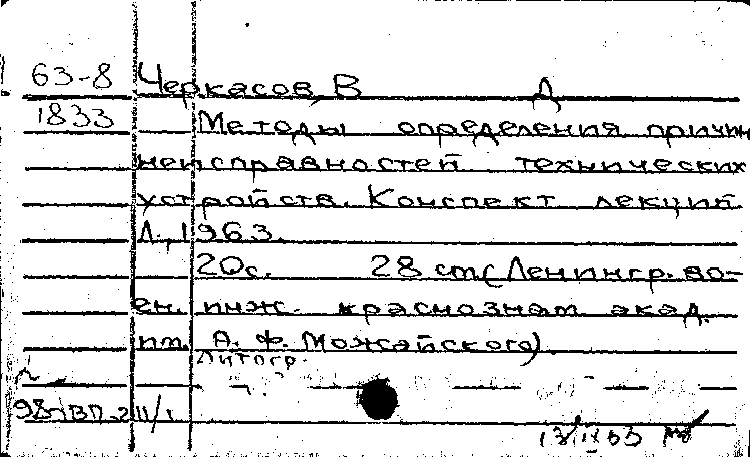 63-8 Черкасов, В Д
1833 Методы определения причин
неисправностей технических
устройств. Конспект лекций
Л., 1963.
20с. 28 см (Ленингр. во-
ен. инж. краснознам. акад.
им. А. Ф. Можайского)
Литогр.
13/IX 63